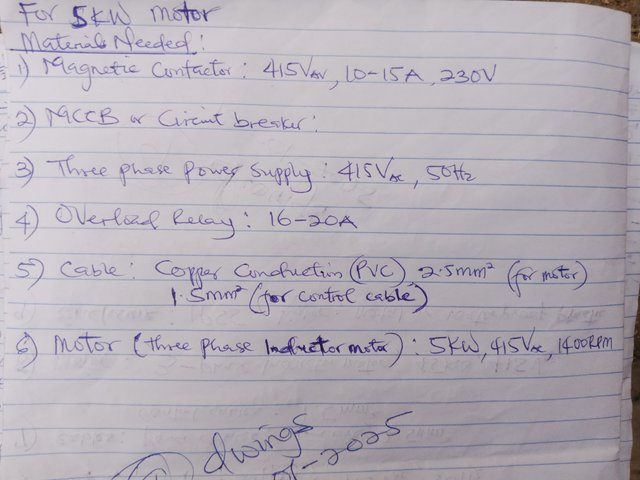 For 5KW Motor
Materials Needed:
1) Magnetic Contactor: 415VAV, 10-15A, 230V
2) MCCB or Circuit breaker:
3) Three phase power supply: 415VAC, 50Hz
4) Overload Relay: 16-20A
5) Cable: Copper Conduction (PVC) 2.5mm² (for motor)
1.5mm² (for control cable)
6) Motor (three phase Inductor motor): 5KW, 415VAC, 1400RPM
dwings
-2025